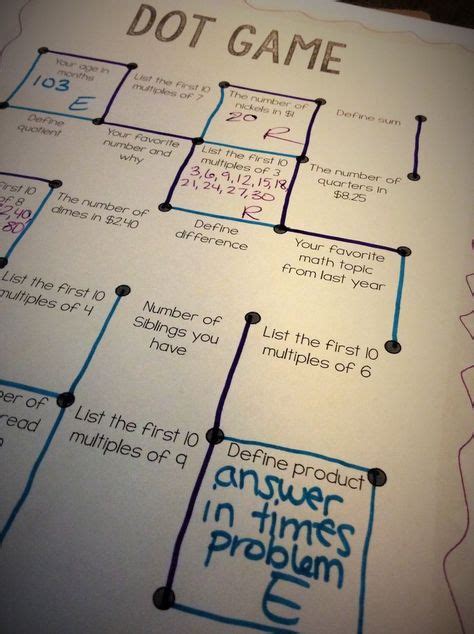 DOT GAME
Your age in
months
103
E
List the first 10
multiples of 7
The number of
nickels in $1
20
R
Define sum
Define
quotient
Your favorite
number and
why
List the first 10
multiples of 3
3, 6, 9, 12, 15, 18,
21, 24, 27, 30
R
The number of
quarters in
$8.25
first 10
of 8
40,
80
The number of
dimes in $2.40
Define
difference
Your favorite
math topic
from last year
List the first 10
multiples of 4
Number of
Siblings you
have
List the first 10
multiples of 6
of
read
List the first 10
multiples of 9
Define product
answer
in times
problem
E